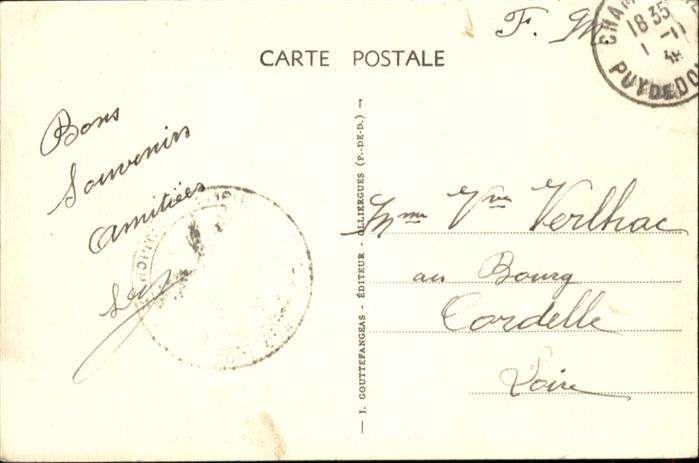 F. M
CARTE POSTALE
18 35
1 -11
PUY DE DO
Bons
Souvenirs
Amitiées
J. GOUTTEFANGEAS - ÉDITEUR - OLLIERGUES (P.-DE-D.)
Mme Vve Verlhac
au Bourg
Cordelle
Loire